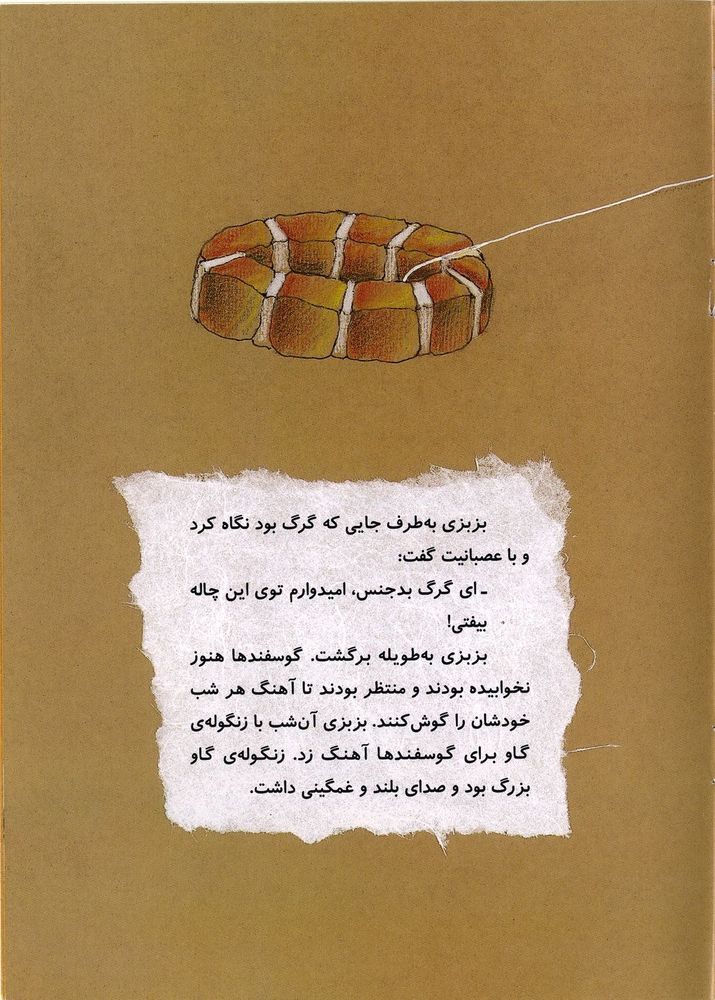 بزبزی به‌طرف جایی که گرگ بود نگاه کرد
و با عصبانیت گفت:
ـ ای گرگ بدجنس، امیدوارم توی این چاله
بیفتی!
بزبزی به‌طویله برگشت. گوسفندها هنوز
نخوابیده بودند و منتظر بودند تا آهنگ هر شب
خودشان را گوش کنند. بزبزی آن‌شب با زنگوله‌ی
گاو برای گوسفندها آهنگ زد. زنگوله‌ی گاو
بزرگ بود و صدای بلند و غمگینی داشت.